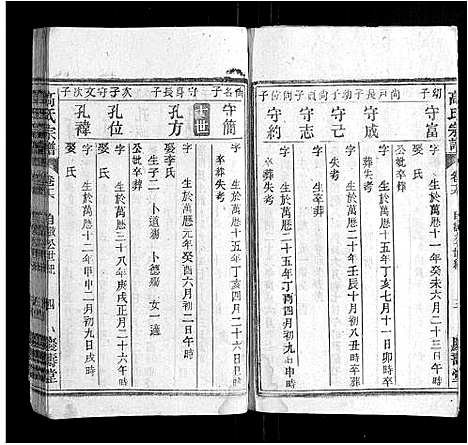 高氏宗譜
卷六
慶壽堂
幼子 守富
字
生於萬曆十一年癸未六月初二日午時
公妣卒葬
尚戶長子 守成
字
生於萬曆十五年丁亥七月十一日卯時卒葬
尚貞子 守己
字
生於萬曆二十年壬辰十月初八丑時卒葬
尚詢子 守志
尚位子 守約
字
生於萬曆二十五年丁酉四月初九日申時
卒葬失考
尚名子 守簡
字
生於萬曆十五年丁亥四月二十六日午時
卒葬失考
十世
守身長子 孔方
字
生於萬曆元年癸酉六月初二日午時
娶李氏
生子二 卜道殤 卜德殤 女一適
公妣卒葬
守文次子 孔位
字
生於萬曆三十八年庚戌正月二十六日
娶 氏
次子 孔禕
字
生於萬曆十二年甲申二月初九日戌時
娶 氏
高氏宗譜
卷六
四
慶壽堂